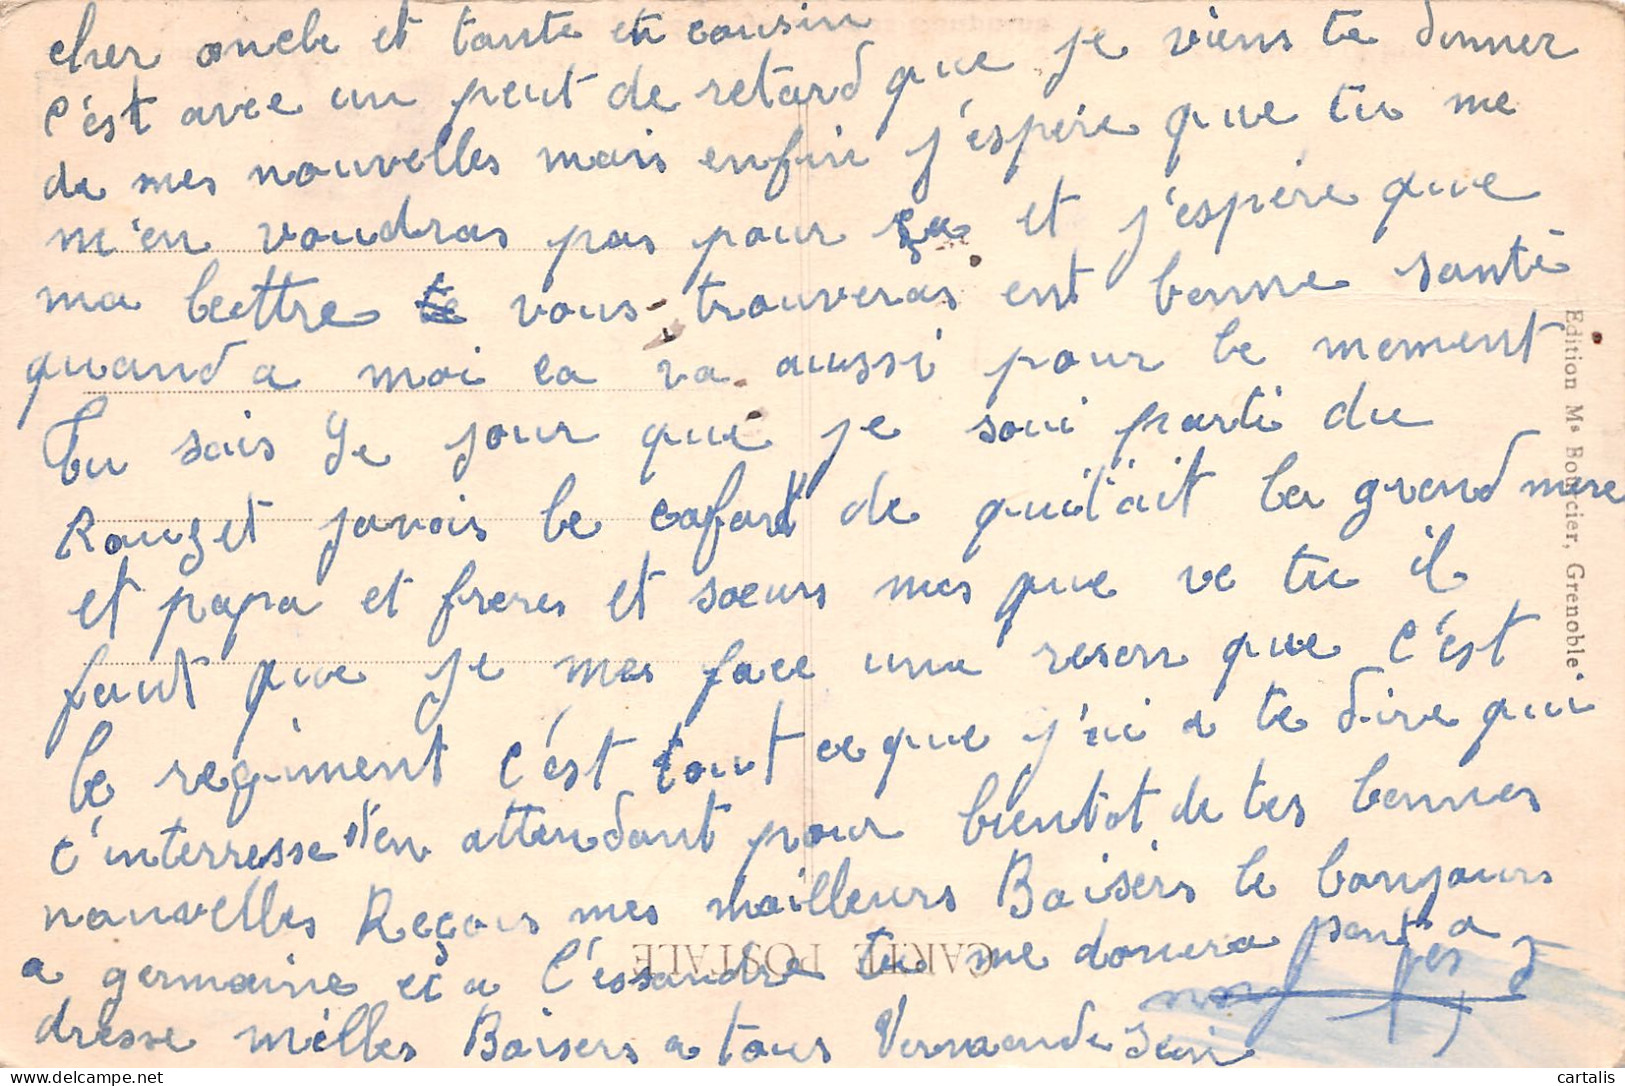 cher oncle et tante et cousin
C'est avec un peut de retard que je viens te donner
de mes nouvelles mais enfin j'espère que tu me
m'en voudras pas pour ça et j'espère que
ma leettre te vous trouveras ent bonne santé
quand a moi ca va aussi pour le moment
Tu sais le jour que je soui parti du
Rouget javois le cafard de quittait la grand mere
et papa et freres et soeurs mes que ve tu il
faut que je mes face una reson que c'est
le regiment C'est tout ce que j'ai a te dire qui
t'interresse "en attendant pour bientot de tes bonnes
nouvelles Reçois mes meilleurs Baisers le bonjours
a germaine et a l'essandre tu me donera
dresse milles Baisers a tous Jean
Edition Ms Boucier, Grenoble
CARTE POSTALE
cartalis
delcampe.net